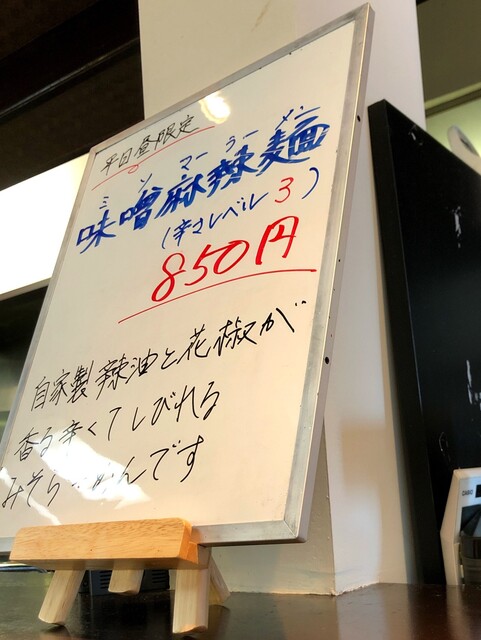 平日昼限定
ミソマーラーメン
味噌麻辣麺
(辛さレベル3)
850円
自家製辣油と花椒が
香る辛くてしびれる
みそらーめんです